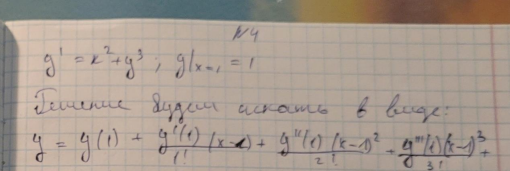 №4
y' = x² + y³ ; y|x=1 = 1
Решение будем искать в виде:
y = y(1) + y'(1)/1! (x-1) + y''(1)(x-1)²/2! + y'''(1)(x-1)³/3! +